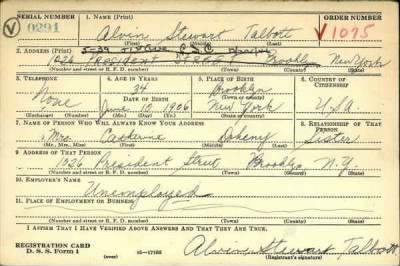 SERIAL NUMBER 1. NAME (Print) ORDER NUMBER
0291 Alvin Stewart Talbott V1075
(First) (Middle) (Last)
2. ADDRESS (Print)
1526 PRESIDENT STREET Brooklyn New York
(Number and street or R. F. D. number) (Town) (County) (State)
3. TELEPHONE 4. AGE IN YEARS 5. PLACE OF BIRTH 6. COUNTRY OF CITIZENSHIP
None 34 Brooklyn
DATE OF BIRTH (Town or county)
June 10, 1906 New York U.S.A.
(Exchange) (Number) (Mo.) (Day) (Yr.) (State or country)
7. NAME OF PERSON WHO WILL ALWAYS KNOW YOUR ADDRESS 8. RELATIONSHIP OF THAT PERSON
Mrs. Doheny Sister
(Mr., Mrs., Miss) (First) (Middle) (Last)
9. ADDRESS OF THAT PERSON
1526 President Street Brooklyn N.Y.
(Number and street or R. F. D. number) (Town) (County) (State)
10. EMPLOYER'S NAME
Unemployed
11. PLACE OF EMPLOYMENT OR BUSINESS
(Number and street or R. F. D. number) (Town) (County) (State)
I AFFIRM THAT I HAVE VERIFIED ABOVE ANSWERS AND THAT THEY ARE TRUE.
REGISTRATION CARD
D. S. S. Form 1 (over) 16—17105 Alvin Stewart Talbott
(Registrant's signature)